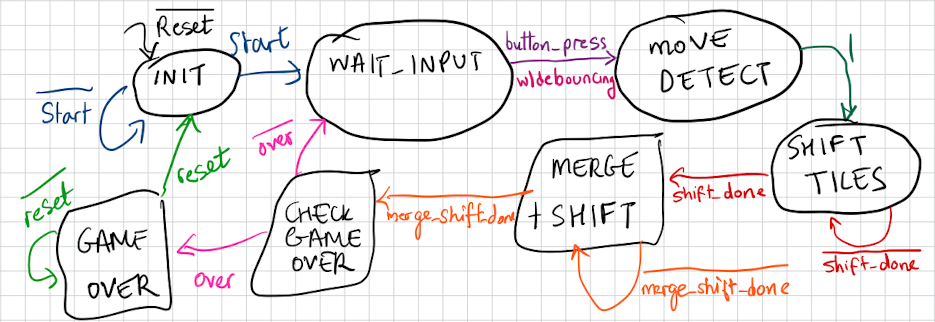 Reset
Start
INIT
Start
WAIT_INPUT
button_press
w/debouncing
MOVE
DETECT
1
SHIFT
TILES
shift_done
shift_done
MERGE
+ SHIFT
merge_shift_done
merge_shift_done
CHECK
GAME
OVER
over
over
GAME
OVER
reset
reset